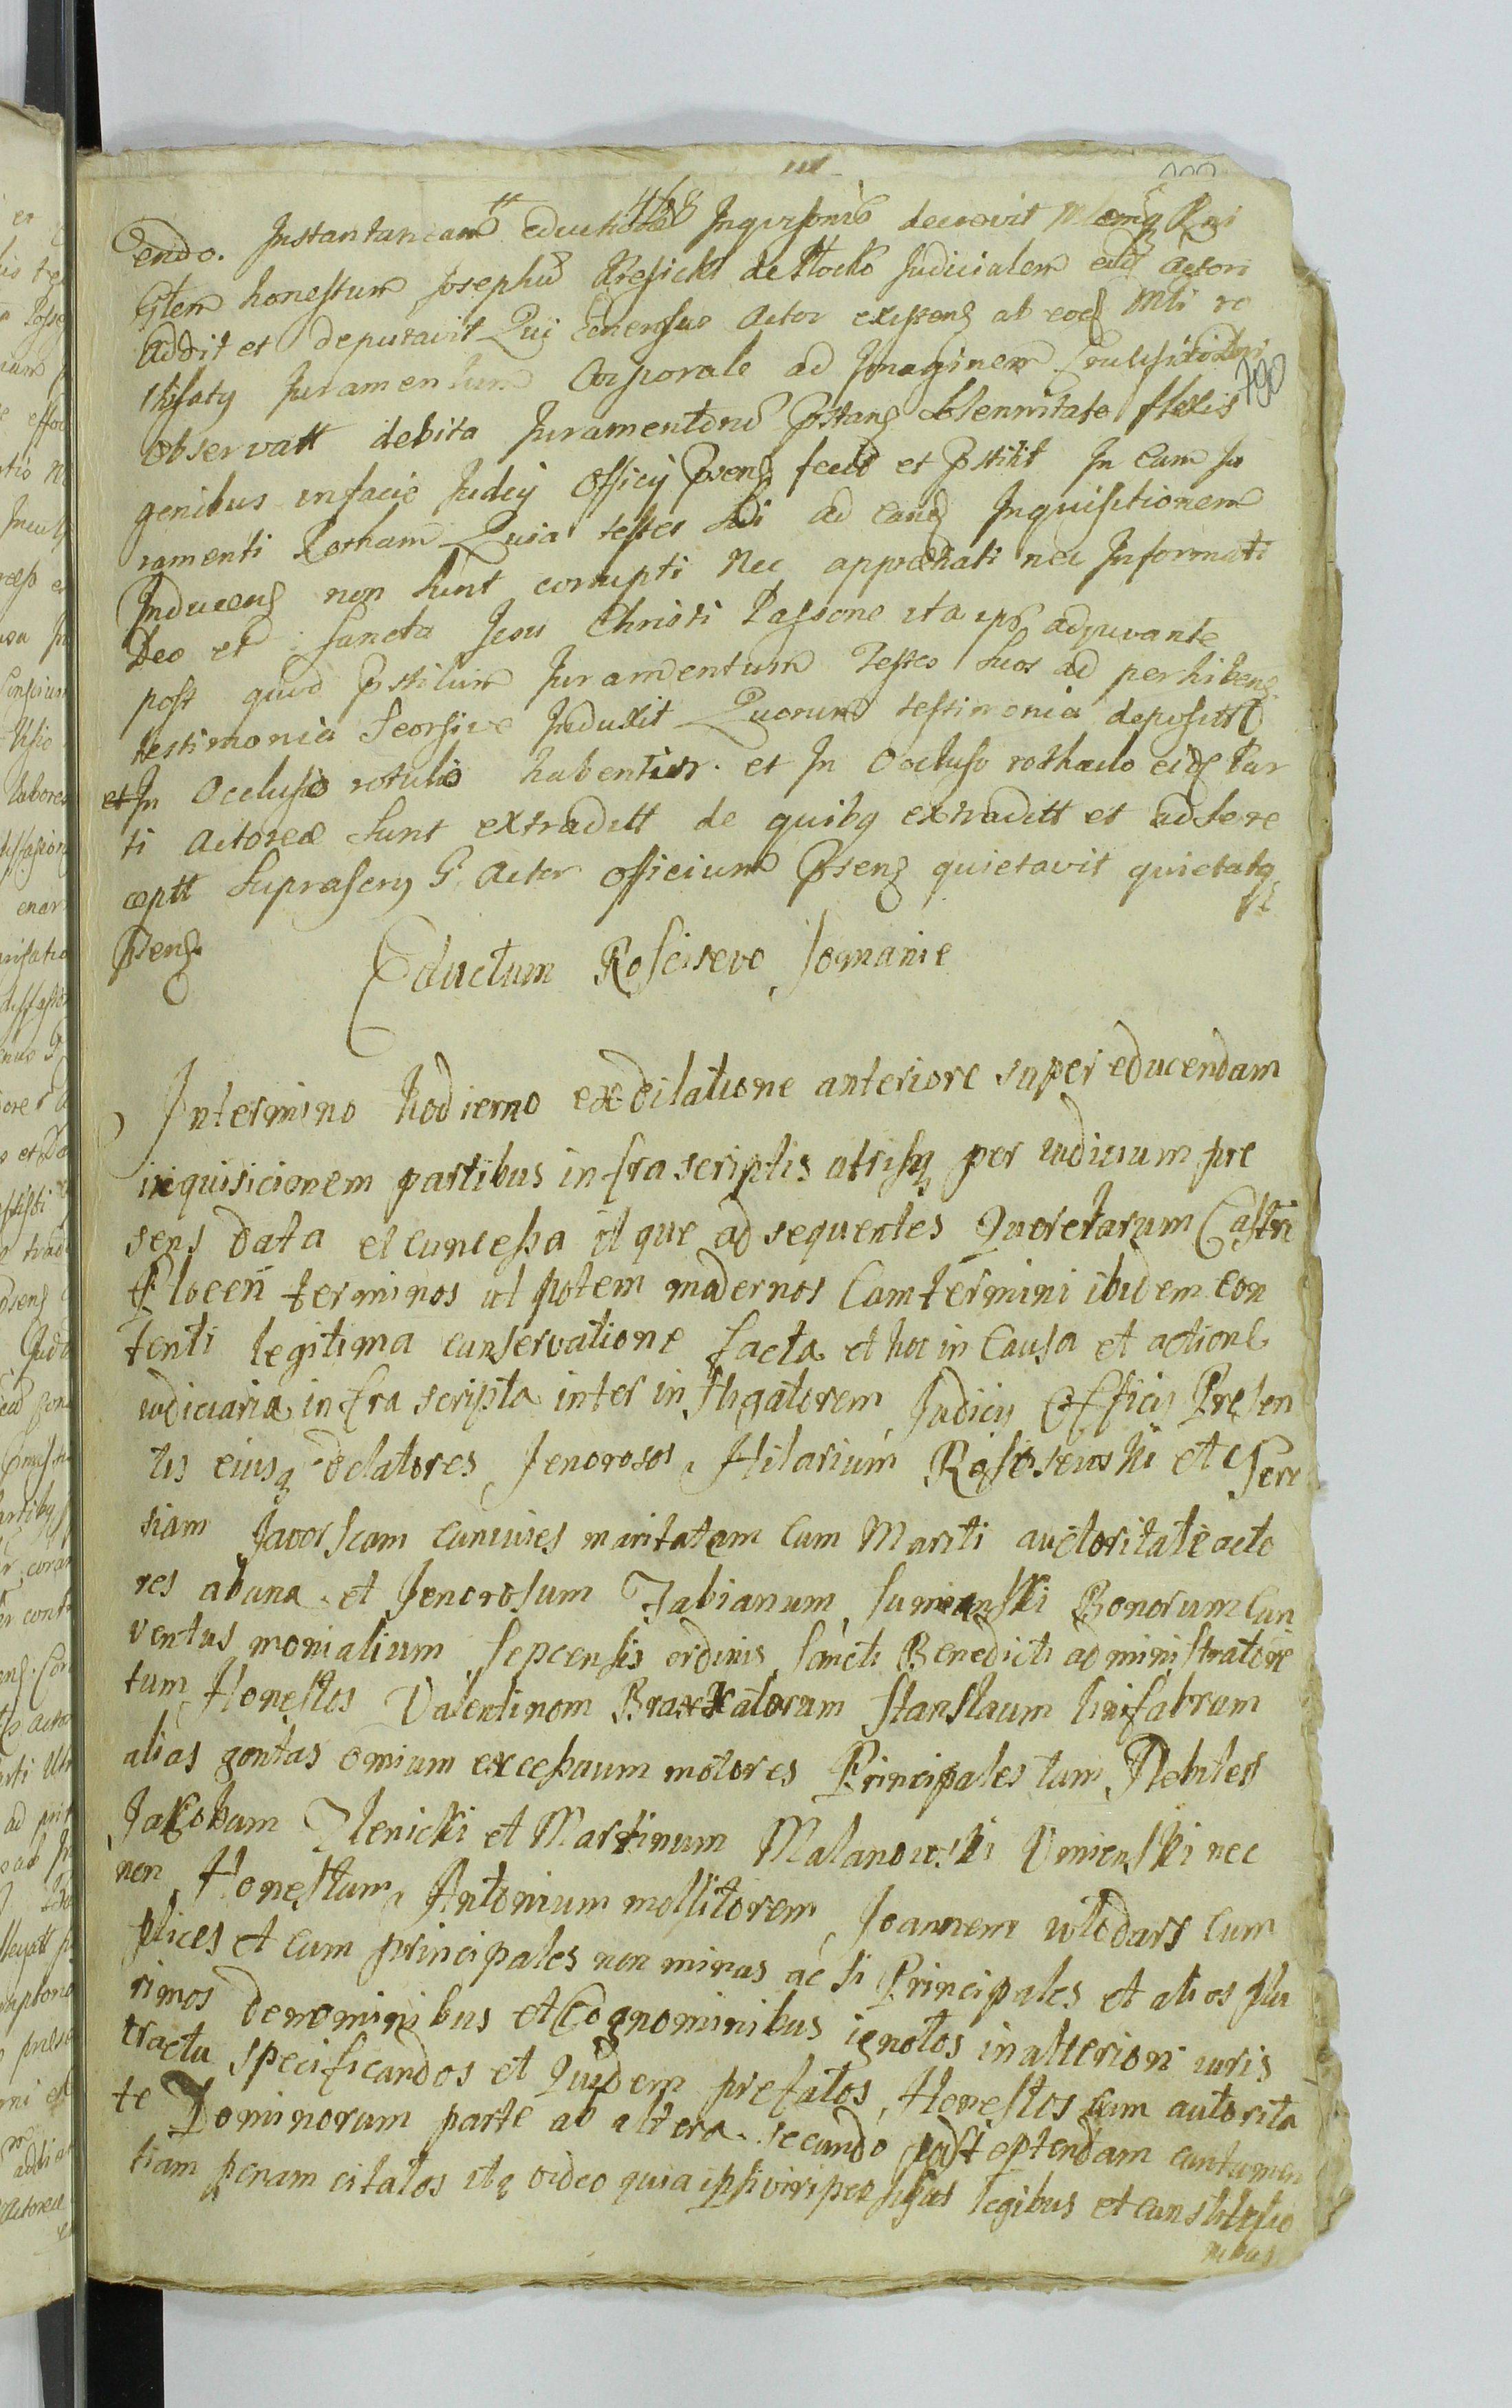 468
endo. Instantaneam eductionem Inqvisonis decrevit Mlemq Rni
Gtlem honestum Josephum de Plocko Judicialem eidem actori
addit et deputavit Qui Comensus Actor existens ab eod Mli re
thisaty Juramentum Corporale ad Imaginem Crucifixi dni
780
observatt debita Juramentorum pstang Solennitate flexis
genibus in facie Judicy Officy psens fecit et pstitit In Eam Ju
ramenti Rotham Quia testes Sui ad eand Inquisitionem
Inducens non sunt corrupti Nec appretiati nec Informati
Deo et Sancta Jesu Christi Passione ita ipso adjuvante
post quod pstitum Juramentum Testes Suos ad perhibens
testimonia Seorsive Induxit Quorum testimonia deposita
et In Occluso rotulo habentur. et In Occluso rothulo eidem Par
ti Actoreæ Sunt extraditt de quibq extraditt et ad se re
ceptt Suprascry G. Actor officium psens quietavit quietatq
st
psens.
Eductum Roscisevo Somanie
In termino hodierno ex dilatione anteriore super educendam
inquisicionem partibus infra scriptis utrisq per iudicium pre
sens data et cuncessa it que ad sequentes Quoretarum Castri
Plocen terminos ut potem modernos Cam termini ibidem con
tenti legitima cunservatione facta et hoc in Causa et actione
iudiciaria infra scripta inter instigatorem Judicy Officy Presen
tis eiusq delatores Jenorosos Hilarium Roscisewski et Tere
siam Javorscam cuniuges maritatam Cum Mariti auctoritate acto
res ab una et Jenorosum Fabianum Sumienski Bonorum Cun
ventus monialium Sepcensis ordinis Sancti Benedicti administratore
tum Honestos Valentinom Braxxatoram Stanslaum linifabrum
alias gontas omium excessuum motores Principales tum Nobiles
Jakobum Ilenicki et Martinum Malanowski Umienski nec
non Honestum Antonium mollitorem Joannem wlodars Cum
plices et cum principales non minus ac si Principales et alios plu
rimos denominibus et Cognominibus ignotos in alteriori iuris
tractu specificandos et quidem prefatos Honestos cum autorita
te Dominorum parte ab altera. secundo post optendam cuntuman
tiam penam citatos itq ideo quia ipsi viripensus legibus et cunstitutio
nibus